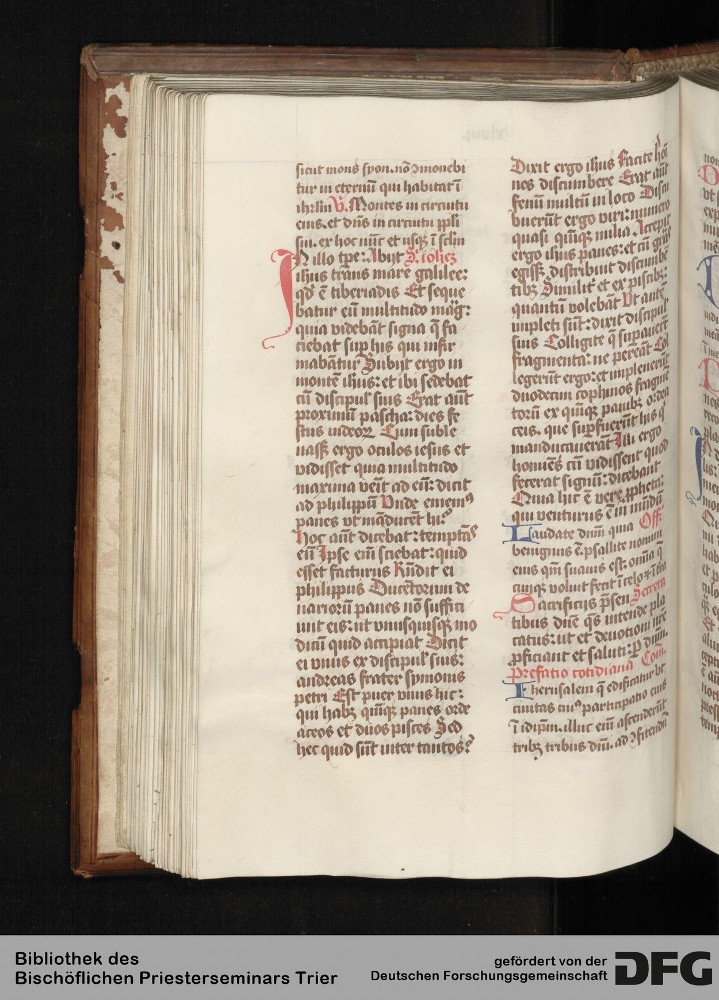 sicut mons syon. nō ꝯmouebi
tur in eternū qui habitat ī
ihrlm V. Montes in circuitu
eius. et dn̄s in circuitu ppli
sui. ex hoc nūc et usqꝫ ī sclm
IN illo tꝑe: Abijt S. iohēꝫ
ihus trans mare galilee:
qd̓ ē tiberiadis Et seque
batur eū multitudo maḡ:
quia videbāt signa q̄ fa
ciebat suꝑ hijs qui infir
mabātur Subijt ergo in
montē ihus: et ibi sedebat
cū discipul̓ suis Erat aūt
proximū pascha: dies fe
stus iudeoꝝ Cum suble
uasꝫ ergo oculos iesus et
vidisset quia multitudo
maxima veīt ad eū: dicit
ad philippū Unde ememꝰ
panes vt māducēt hij?
Hoc aūt dicebat: temptās
eū Ipse eīn sciebat: quid
esset facturus Rn̄dit ei
philippus Ducētorum de
narioꝝ panes nō suffici
unt eis: ut vnusquisqꝫ mo
dicū quid accipiat Dicit
ei vnus ex discipul̓ suis:
andreas frater symonis
petri Est puer vnus hic:
qui habꝫ qūiqꝫ panes orde
aceos et duos pisces Sed
hec quid sūt inter tantos?
Dixit ergo ihus Facite hōi
nes discumbere Erat aūt
fenū multū in loco Discu
buerūt ergo viri: numero
quasi qūiqꝫ milia Accepit
ergo ihus panes: et cū grās
egissꝫ distribuit discumbē
tibꝫ Similit̓ et ex piscibꝫ:
quantū volebāt Ut autē
impleti sūt: dixit discipul̓
suis Colligite q̄ suꝑauerūt
fragmenta: ne pereāt Col
legerūt ergo: et impleuerūt
duodecim cophinos fragmē
torū ex qūiqꝫ panibꝫ ordea
ceis. que suꝑfuerūt hijs q̄
manducauerāt Illi ergo
homiēs cū vidissent quod
fecerat signū: dicebant
Quia hic ē vere ꝓpheta:
qui venturus ē in mūdū
Laudate dnm̄ quia Off.
benignus ē. psallite nomini
eius qm̄ suauis est. omīa q̄
cūqꝫ voluit fecit ī celo ⁊ ī t̄ra
Sacrificijs p̄sen Secreta
tibus dn̄e q̄s intende pla
catus: ut et deuotioni nr̄e
ꝓficiant et saluti: P dnm̄.
Prefatio cotidiana Com.
Iherusalem q̄ edificatur vt
ciuitas cuiꝰ participatio eius
ī idip̄m. illuc eīn ascenderūt
tribꝫ tribus dnī. ad ꝯfitendū
Bibliothek des
Bischöflichen Priesterseminars Trier
gefördert von der
Deutschen Forschungsgemeinschaft
DFG